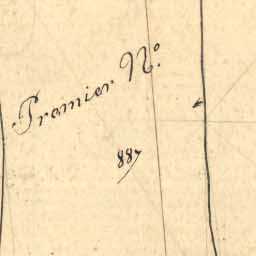 Premier No.
887